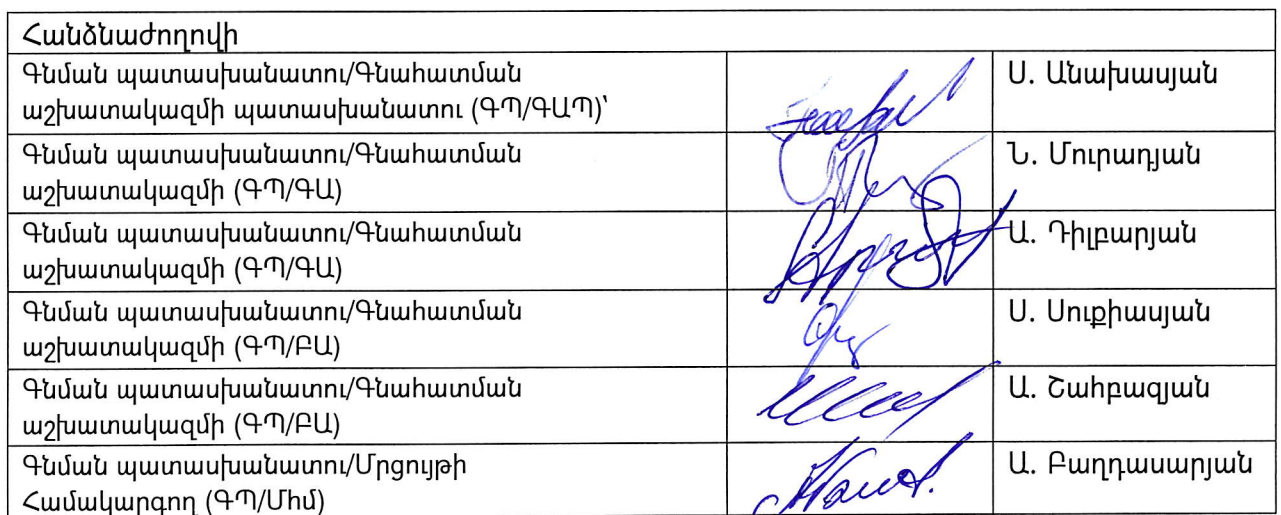 Հանձնաժողովի
Գնման պատասխանատու/Գնահատման
աշխատակազմի պատասխանատու (ԳՊ/ԳԱՊ)՝
Ս. Անախասյան
Գնման պատասխանատու/Գնահատման
աշխատակազմի (ԳՊ/ԳԱ)
Ն. Մուրադյան
Գնման պատասխանատու/Գնահատման
աշխատակազմի (ԳՊ/ԳԱ)
Ա. Դիլբարյան
Գնման պատասխանատու/Գնահատման
աշխատակազմի (ԳՊ/ԲԱ)
Ս. Սուքիասյան
Գնման պատասխանատու/Գնահատման
աշխատակազմի (ԳՊ/ԲԱ)
Ա. Շահբազյան
Գնման պատասխանատու/Մրցույթի
Համակարգող (ԳՊ/Մհմ)
Ա. Բաղդասարյան